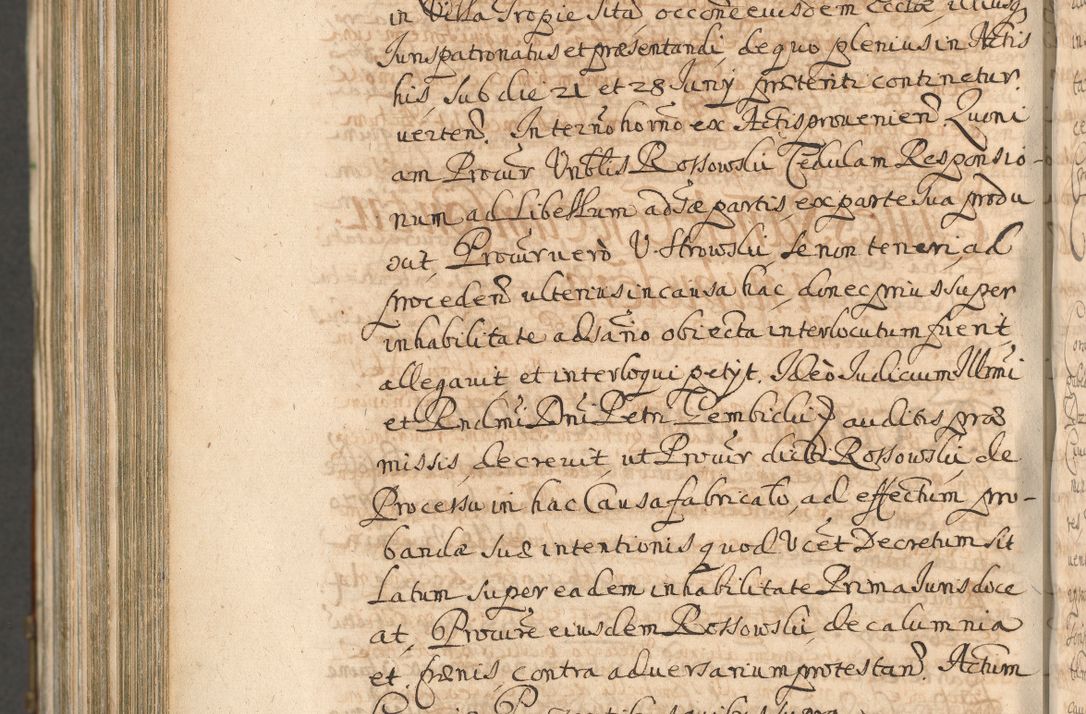 in Villa Tropie sita occõne eiusdem Ecclæ illiusq
Jurispatronatus et præsentandi, de quo plenius in Actis
his sub die 21 et 28 Junÿ præteriti continetur
verten. In termo horno ex Actis provenien Quoni
am Procur Vnblis Rossowski Cedulam Responsio-
num ad Libellum adsæ partis, ex parte sua produ
xit, Procur vero V. Strowski se non teneri, ad
proceden ulterius in causa hac, donec prius super
inhabilitate adsario obiecta interlocutum fuerit,
allegavit et interloqui petÿt. Ideò Judicium Illrmi
et Rndmi Dni Petri Gembicki auditis præ
missis, decrevit, ut Procur dicti Rossowski, de
Processu in hac Causa fabricato, ad effectum pro-
bandæ suæ intentionis quod Vcet Decretum sit
Latum super eadem inhabilitate Prima Juris doce
at, Procure eiusdem Rossowski, de calumnia
et pænis, contra adversarium protestan. Actum